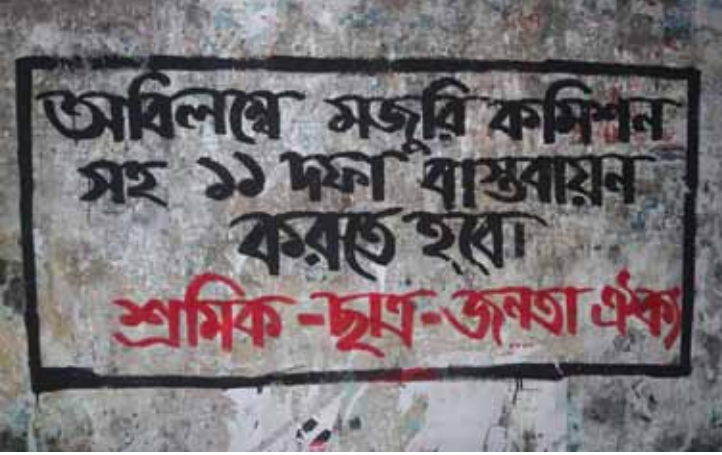 অবিলম্বে মজুরি কমিশন
সহ ১১ দফা বাস্তবায়ন
করতে হবে।
শ্রমিক-ছাত্র-জনতা ঐক্য